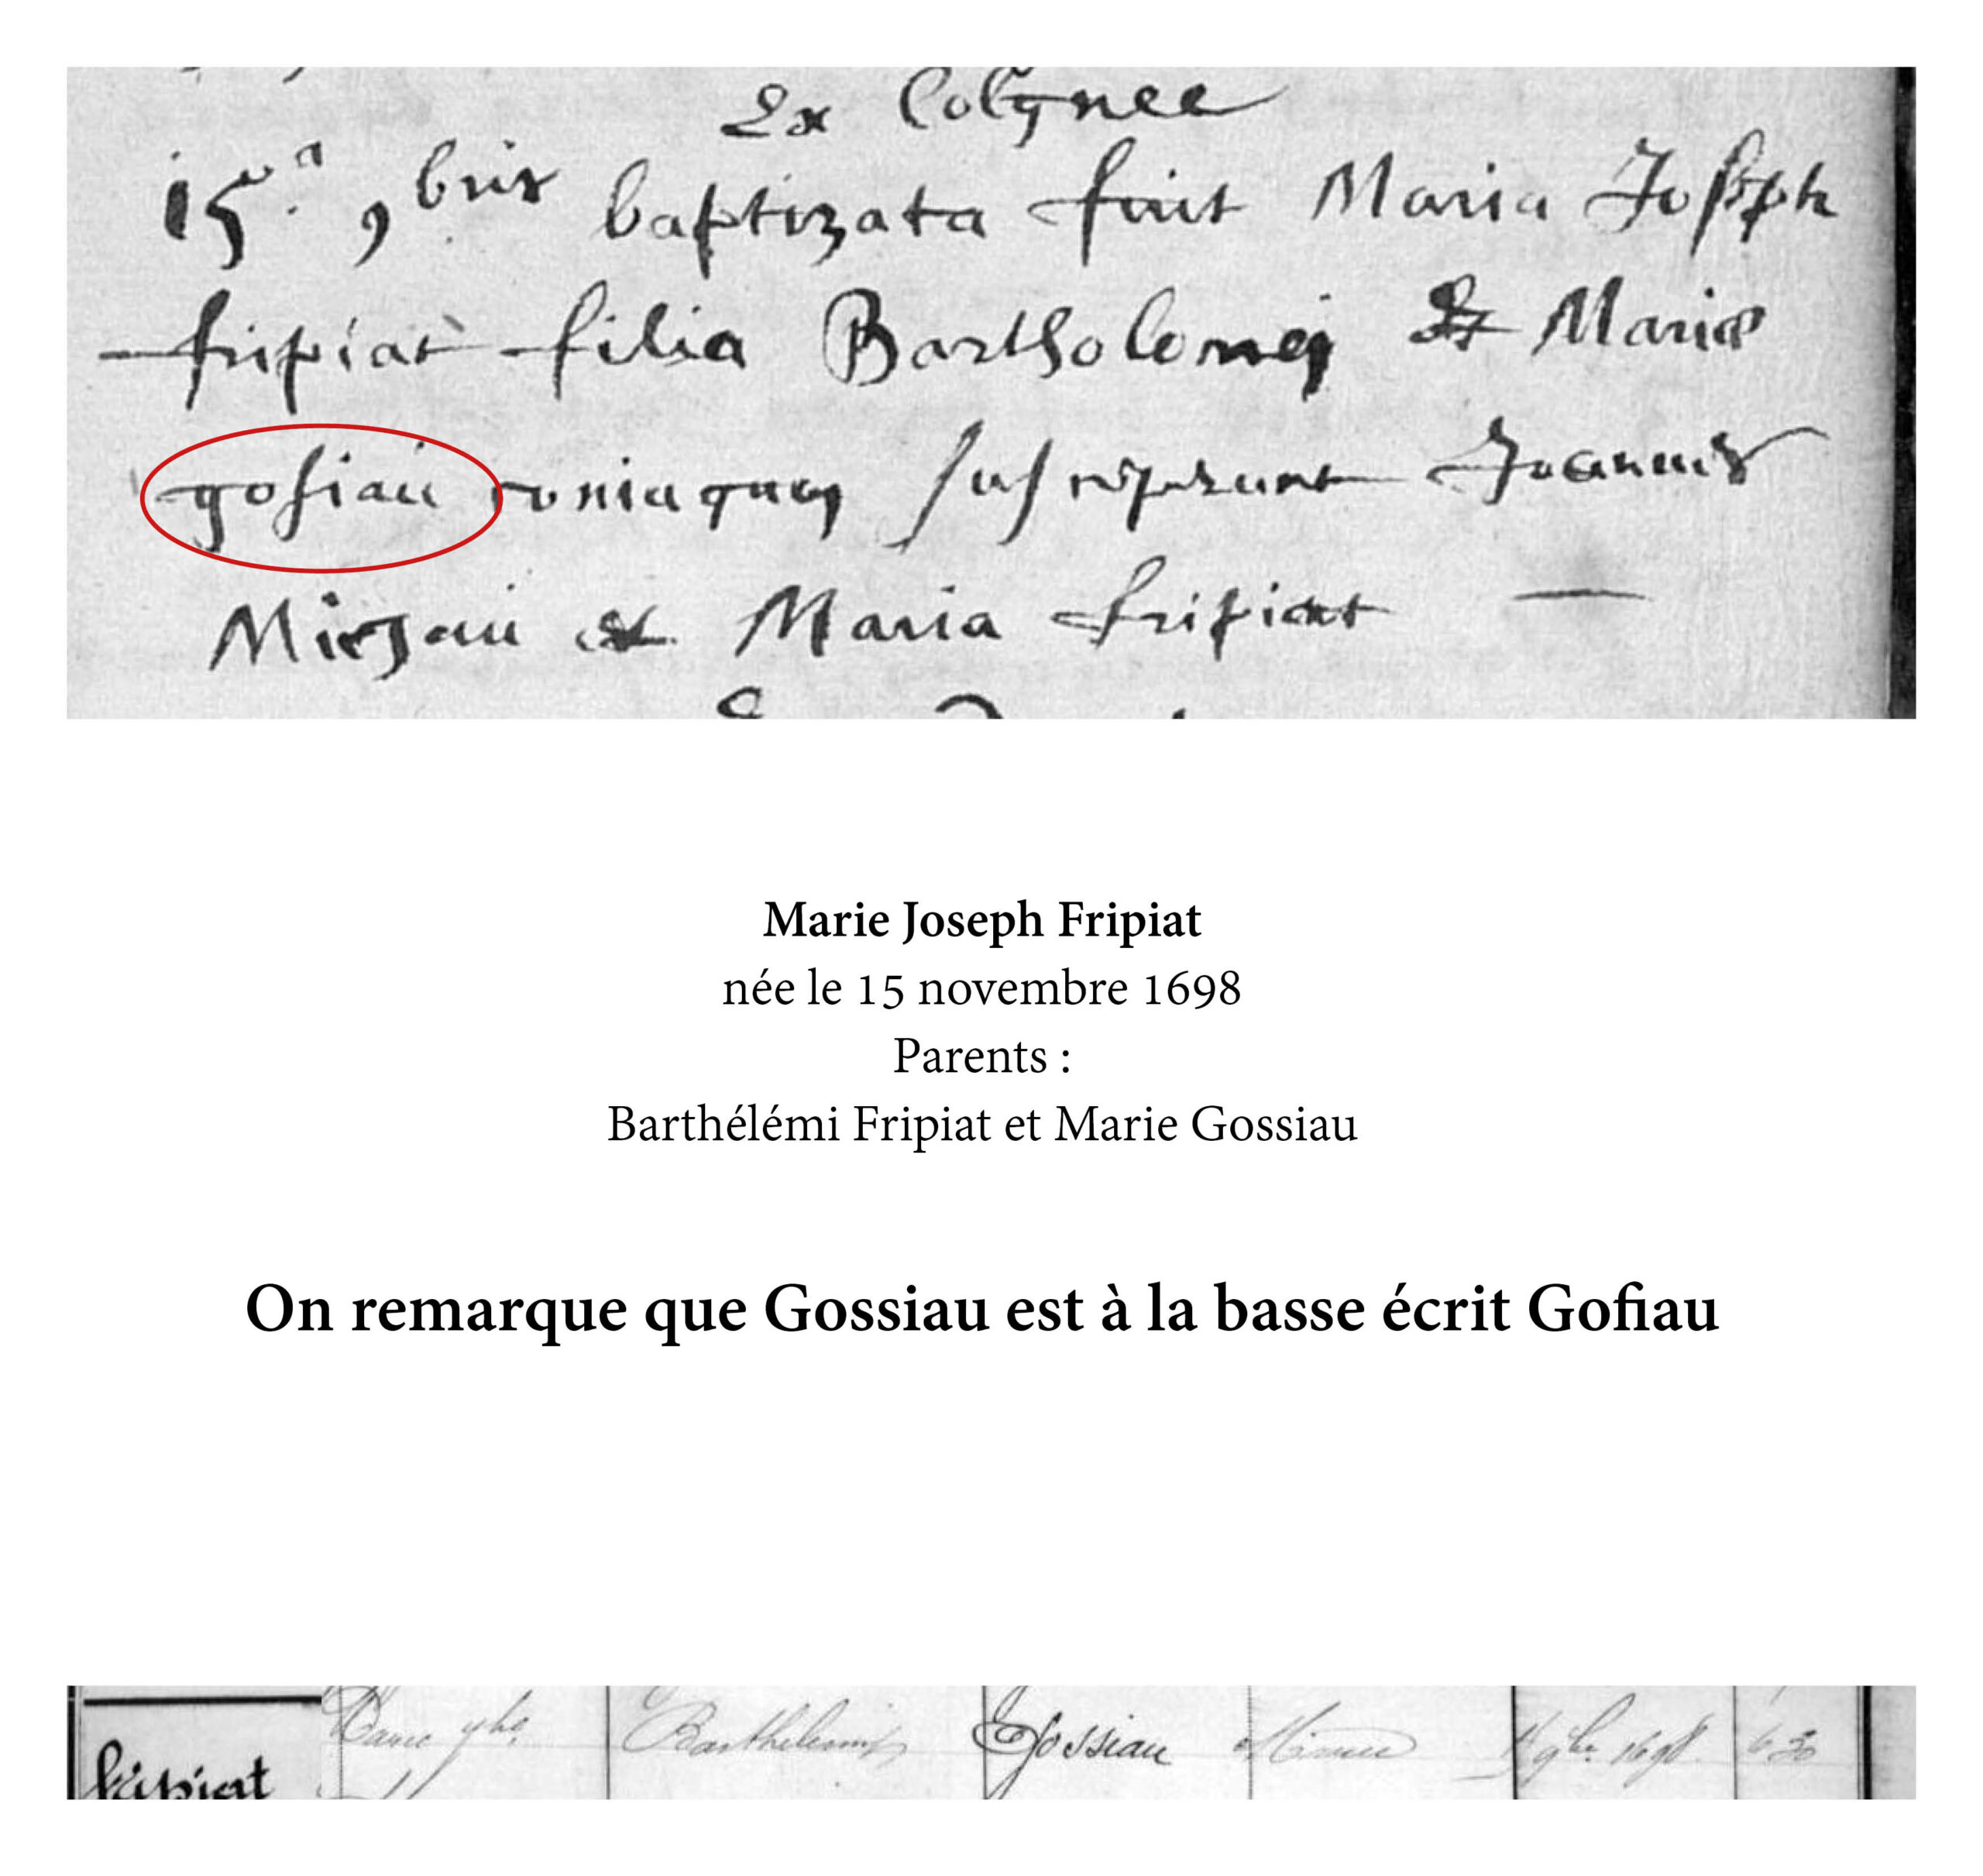 Ex Colgnee
15ª 9bris baptizata fuit Maria Joseph
fripiat filia Bartholomej & Mariæ
gosiau coniugum susceperunt Joannes
Mirjau et Maria fripiat
Marie Joseph Fripiat
née le 15 novembre 1698
Parents :
Barthélémi Fripiat et Marie Gossiau
On remarque que Gossiau est à la basse écrit Gofiau
fripiat Marie Jhe Barthelemy Gossiau 9bre 1698 630